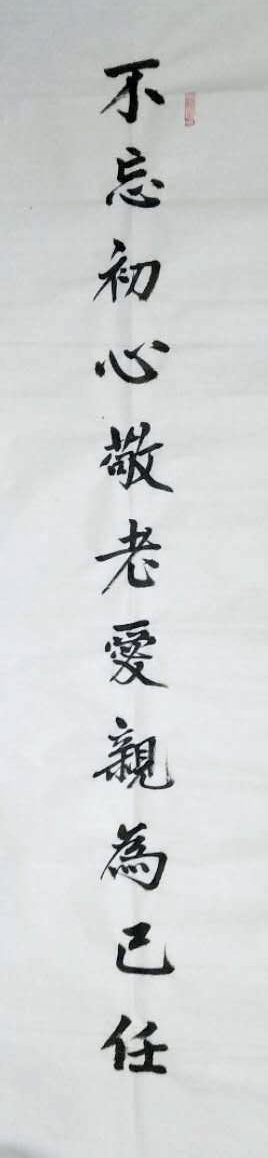 不忘初心敬老愛親為己任